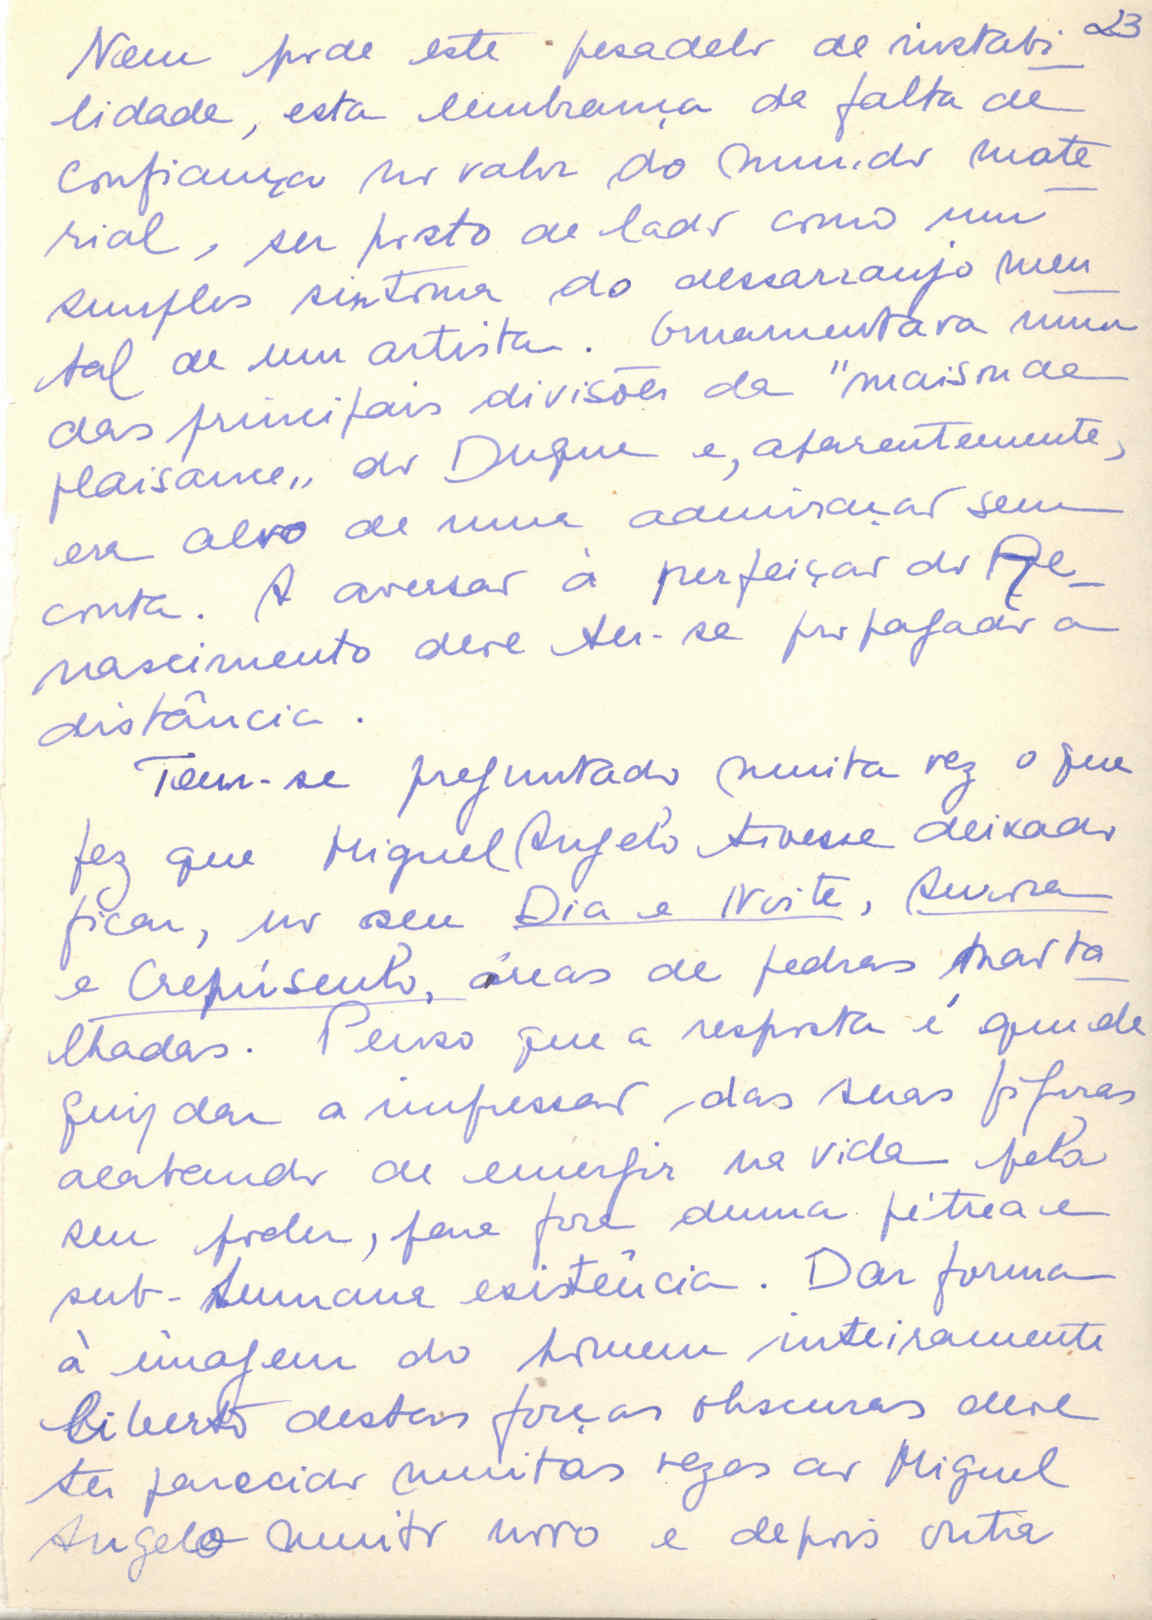 23
Nem pode este pesadelo de instabi
lidade, esta lembrança da falta de
confiança no valor do mundo mate
rial, ser posto de lado como um
simples sintoma do desarranjo men
tal de um artista. Ornamentava uma
das principais divisões da "maison de
plaisance" do Duque e, aparentemente,
era alvo de uma admiração sem
conta. A aversão à perfeição do Re-
nascimento deve ter-se propagado a
distância.
Tem-se preguntado muita vez o que
fez que Miguel Angelo tivesse deixado
ficar, no seu Dia e Noite, Aurora
e Crepúsculo, áreas de pedras marte
lhadas. Penso que a resposta é que de
quiz dar a impressão das suas figuras
acabando de emergir na vida pelo
seu poder, para fora duma pétrea e
sub-humana existência. Dar forma
à imagem do homem inteiramente
liberto destas forças obscuras deve
ter parecido muitas vezes ao Miguel
Angelo muito novo e depois outra